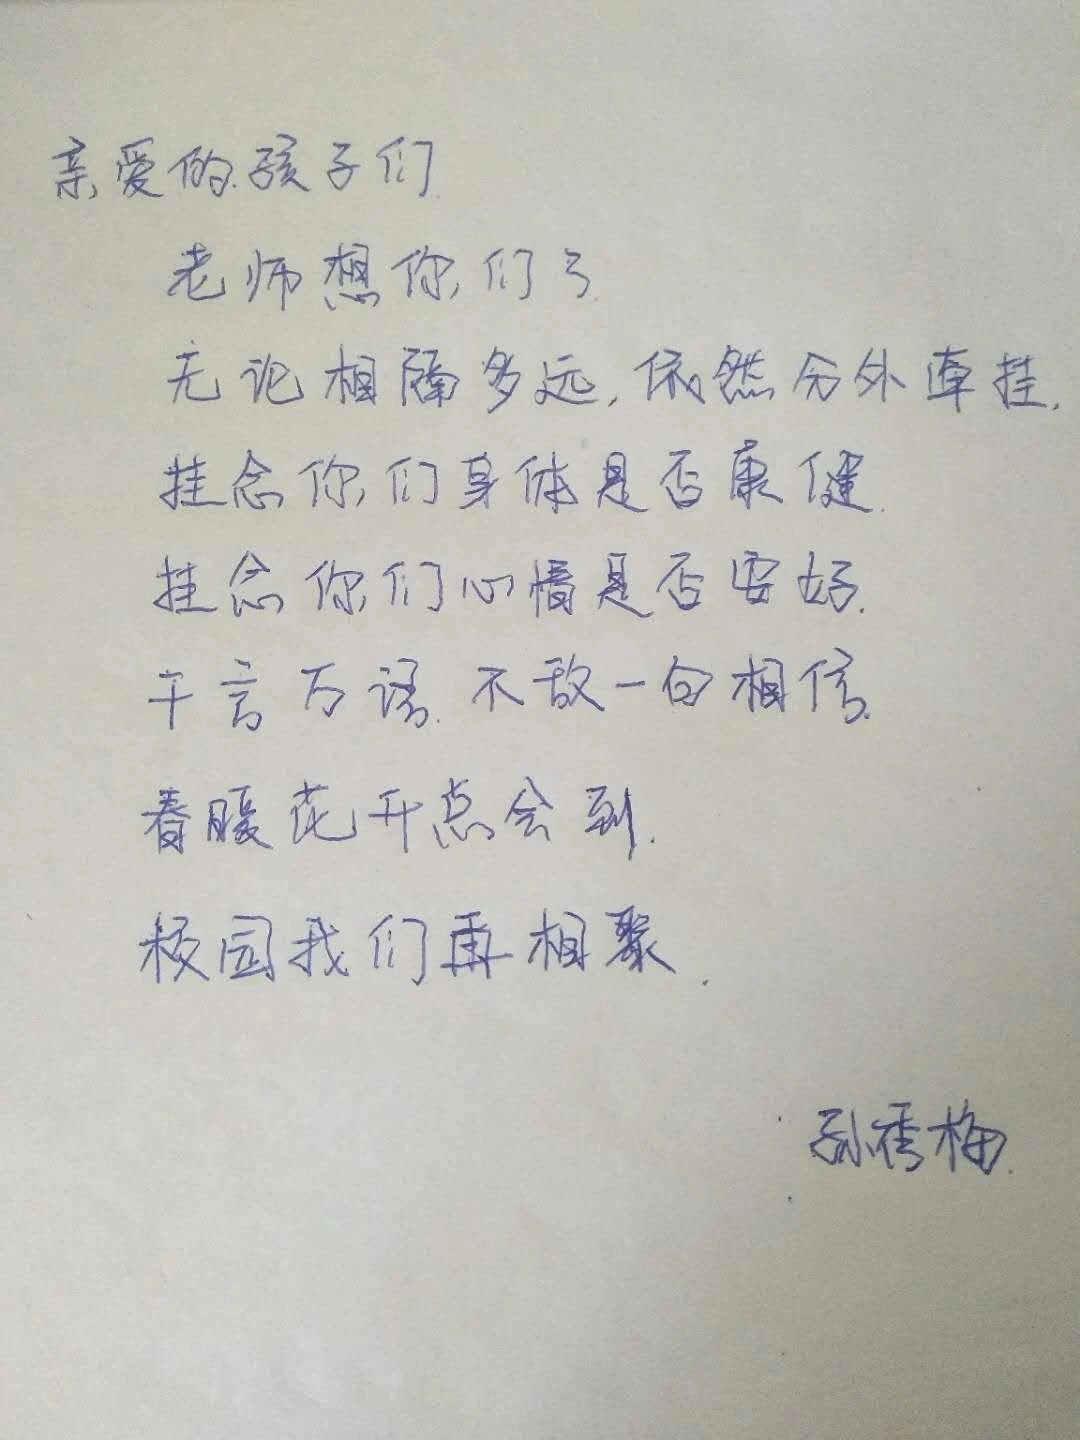 亲爱的孩子们.
老师想你们了.
无论相隔多远,依然分外牵挂.
挂念你们身体是否康健.
挂念你们心情是否安好.
千言万语.不敌一句相信.
春暖花开总会到.
校园我们再相聚.
孙秀梅.